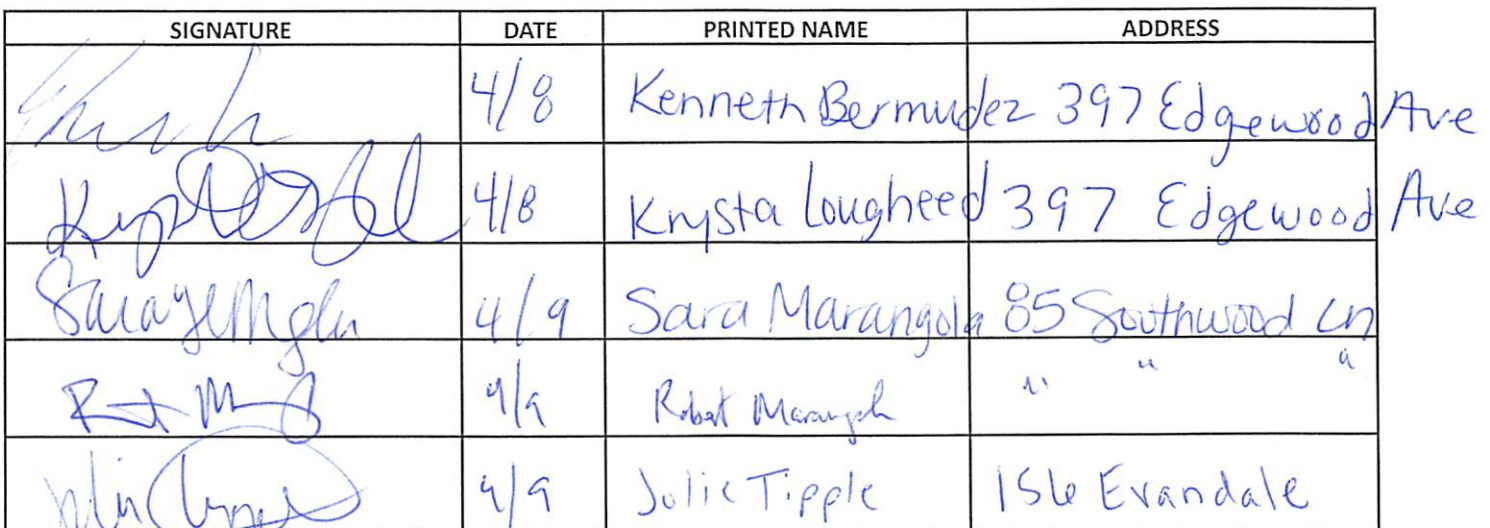 SIGNATURE DATE PRINTED NAME ADDRESS
4/8 Kenneth Bermudez 397 Edgewood Ave
4/8 Krysta Lougheed 397 Edgewood Ave
4/9 Sara Marangola 85 Southwood Ln
4/9 Robert Marangola " " "
4/9 Julie Tipple 156 Evandale